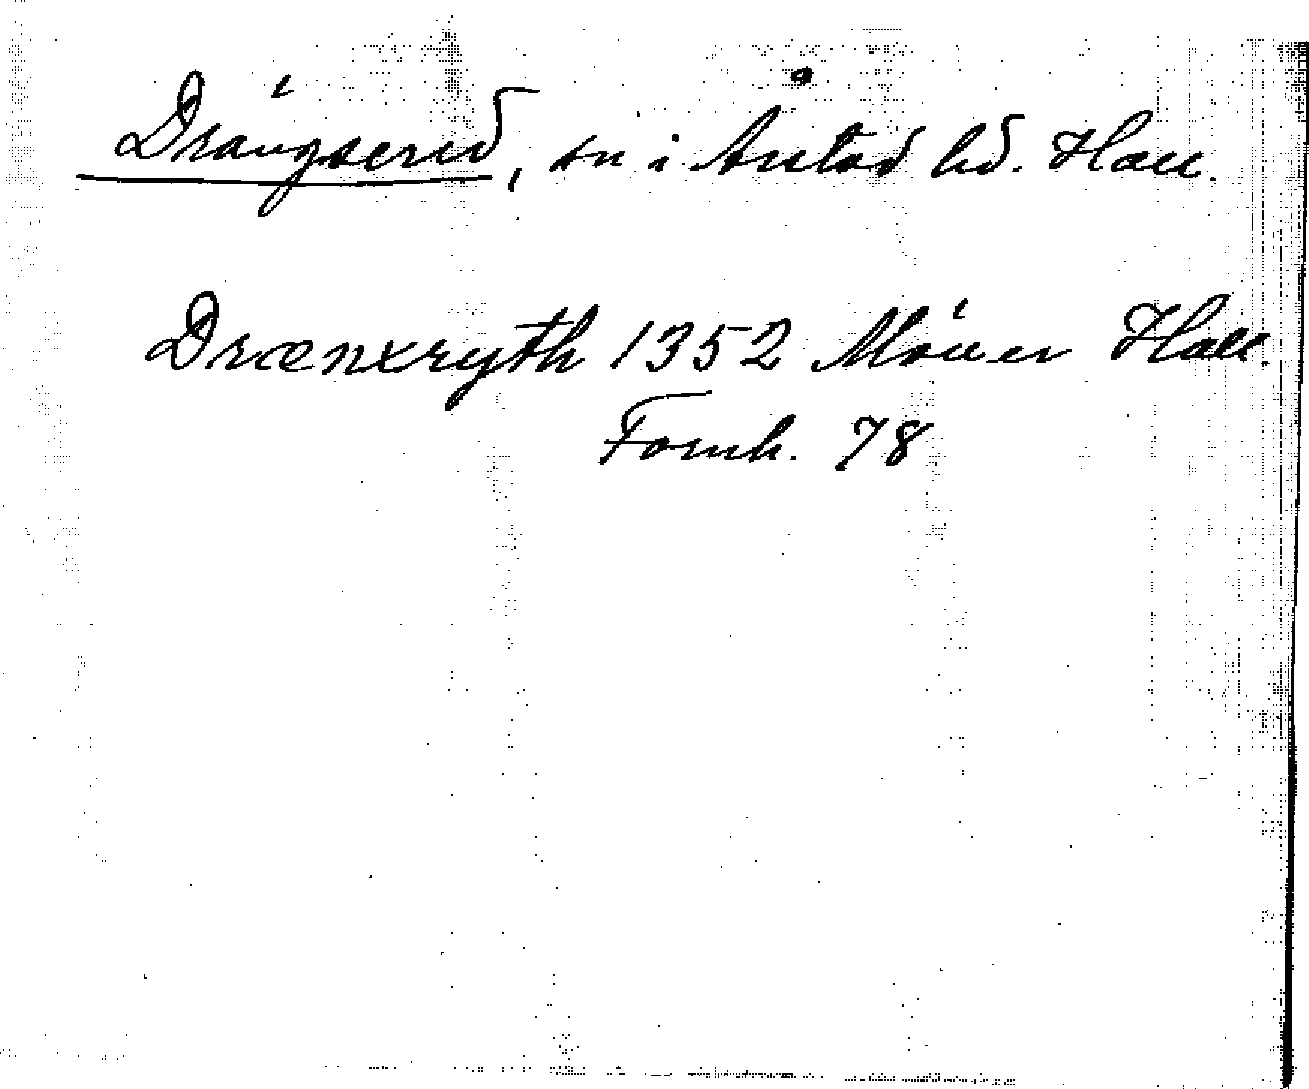 Drängsered, sn i Årstad hd. Hall.
Drænxryth 1352 Möller Hall.
Fornh. 78